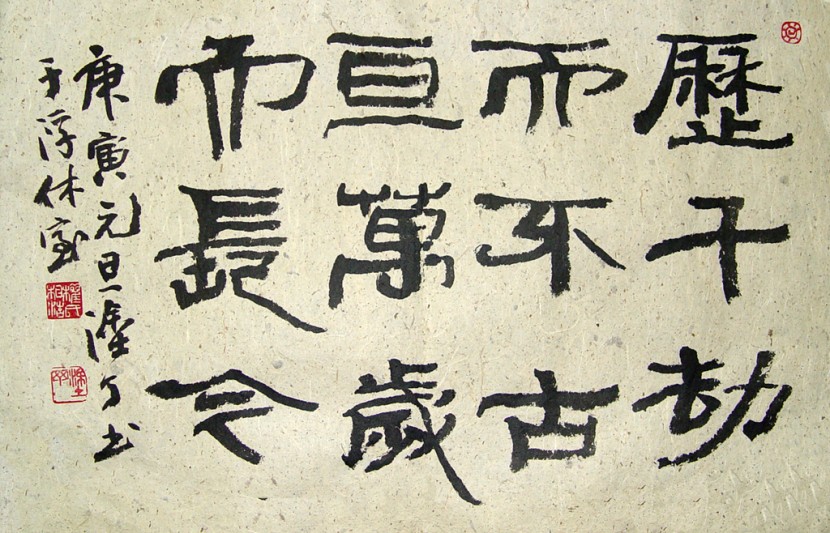 歷千劫
而不古
亘萬歲
而長今
庚寅元旦書
于浮休室